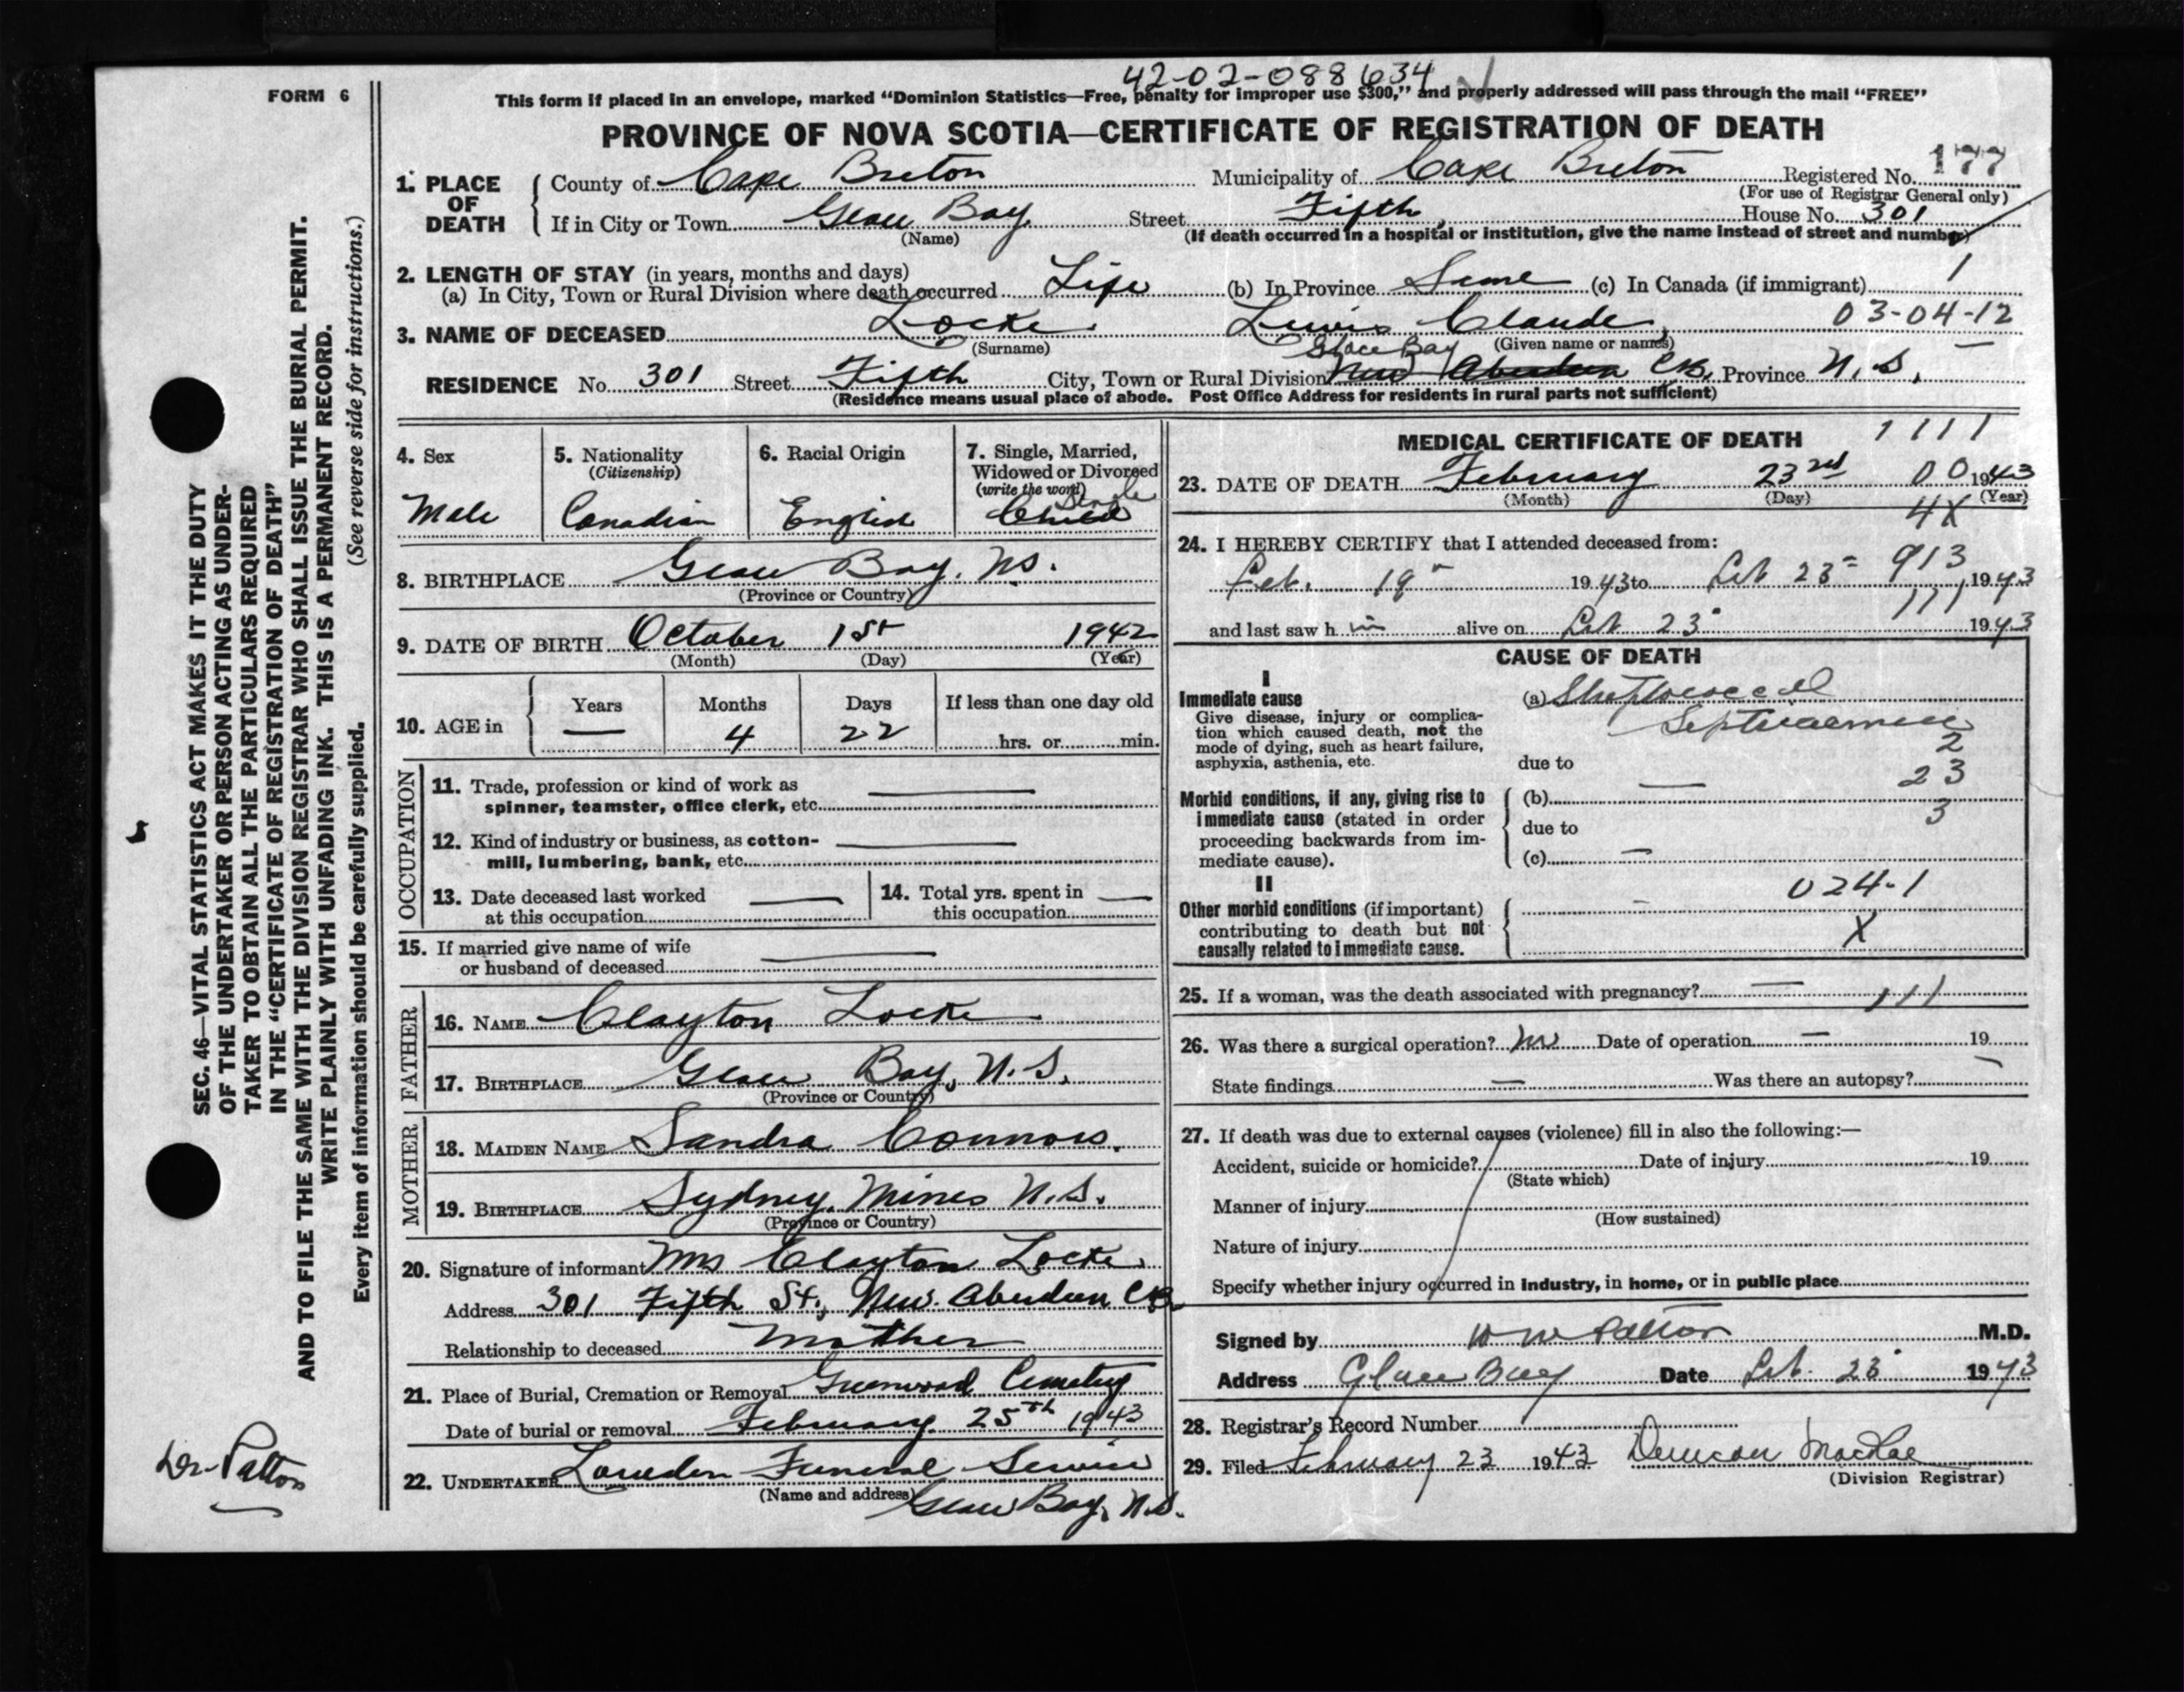 42-02-088634
FORM 6
This form if placed in an envelope, marked “Dominion Statistics—Free, penalty for improper use $300,” and properly addressed will pass through the mail “FREE”
PROVINCE OF NOVA SCOTIA—CERTIFICATE OF REGISTRATION OF DEATH
177
1. PLACE OF DEATH
County of Cape Breton Municipality of Cape Breton Registered No.
(For use of Registrar General only)
If in City or Town Glace Bay Street Fifth, House No. 301
(Name) (If death occurred in a hospital or institution, give the name instead of street and number)
2. LENGTH OF STAY (in years, months and days)
(a) In City, Town or Rural Division where death occurred Life (b) In Province Same (c) In Canada (if immigrant) 1
3. NAME OF DECEASED Locke Lewis Claude, 03-04-12
(Surname) (Given name or names)
Glace Bay
RESIDENCE No. 301 Street Fifth City, Town or Rural Division New Aberdeen C.B. Province N.S.
(Residence means usual place of abode. Post Office Address for residents in rural parts not sufficient)
4. Sex
Male
5. Nationality
(Citizenship)
Canadian
6. Racial Origin
English
7. Single, Married,
Widowed or Divorced
(write the word)
Single
Child
8. BIRTHPLACE Glace Bay, N.S.
(Province or Country)
9. DATE OF BIRTH October 1st 1942
(Month) (Day) (Year)
10. AGE in
Years Months Days If less than one day old
— 4 22 hrs. or min.
OCCUPATION
11. Trade, profession or kind of work as
spinner, teamster, office clerk, etc. —
12. Kind of industry or business, as cotton-
mill, lumbering, bank, etc. —
13. Date deceased last worked
at this occupation —
14. Total yrs. spent in
this occupation —
15. If married give name of wife
or husband of deceased —
FATHER
16. NAME Clayton Locke
17. BIRTHPLACE Glace Bay, N.S.
(Province or Country)
MOTHER
18. MAIDEN NAME Sandra Connors.
19. BIRTHPLACE Sydney Mines N.S.
(Province or Country)
20. Signature of informant Mrs Clayton Locke
Address 301 Fifth St., New Aberdeen C.B.
Relationship to deceased Mother
21. Place of Burial, Cremation or Removal Greenwood Cemetery
Date of burial or removal February 25th 1943
22. UNDERTAKER Funeral Service
(Name and address) Glace Bay, N.S.
MEDICAL CERTIFICATE OF DEATH 1111
23. DATE OF DEATH February 23rd 00 1943
(Month) (Day) (Year)
4X
24. I HEREBY CERTIFY that I attended deceased from:
Feb. 19 1943 to Feb 23 913 1943
111
and last saw h im alive on Feb 23 1943
CAUSE OF DEATH
I
Immediate cause
Give disease, injury or complica-
tion which caused death, not the
mode of dying, such as heart failure,
asphyxia, asthenia, etc.
(a) Streptococcal
Septicaemia
2
due to
23
Morbid conditions, if any, giving rise to
immediate cause (stated in order
proceeding backwards from im-
mediate cause).
(b) —
3
due to
(c) —
II
024-1
Other morbid conditions (if important)
contributing to death but not
causally related to immediate cause.
X
25. If a woman, was the death associated with pregnancy? — 111
26. Was there a surgical operation? no Date of operation — 19
State findings — Was there an autopsy?
27. If death was due to external causes (violence) fill in also the following:—
Accident, suicide or homicide? Date of injury 19
(State which)
Manner of injury
(How sustained)
Nature of injury
Specify whether injury occurred in industry, in home, or in public place
Signed by Patton M.D.
Address Glace Bay Date Feb. 23 1943
28. Registrar's Record Number
29. Filed February 23 1943 Duncan MacRae
(Division Registrar)
SEC. 46—VITAL STATISTICS ACT MAKES IT THE DUTY
OF THE UNDERTAKER OR PERSON ACTING AS UNDER-
TAKER TO OBTAIN ALL THE PARTICULARS REQUIRED
IN THE “CERTIFICATE OF REGISTRATION OF DEATH”
AND TO FILE THE SAME WITH THE DIVISION REGISTRAR WHO SHALL ISSUE THE BURIAL PERMIT.
WRITE PLAINLY WITH UNFADING INK. THIS IS A PERMANENT RECORD.
(See reverse side for instructions.)
Every item of information should be carefully supplied.
Dr. Patton